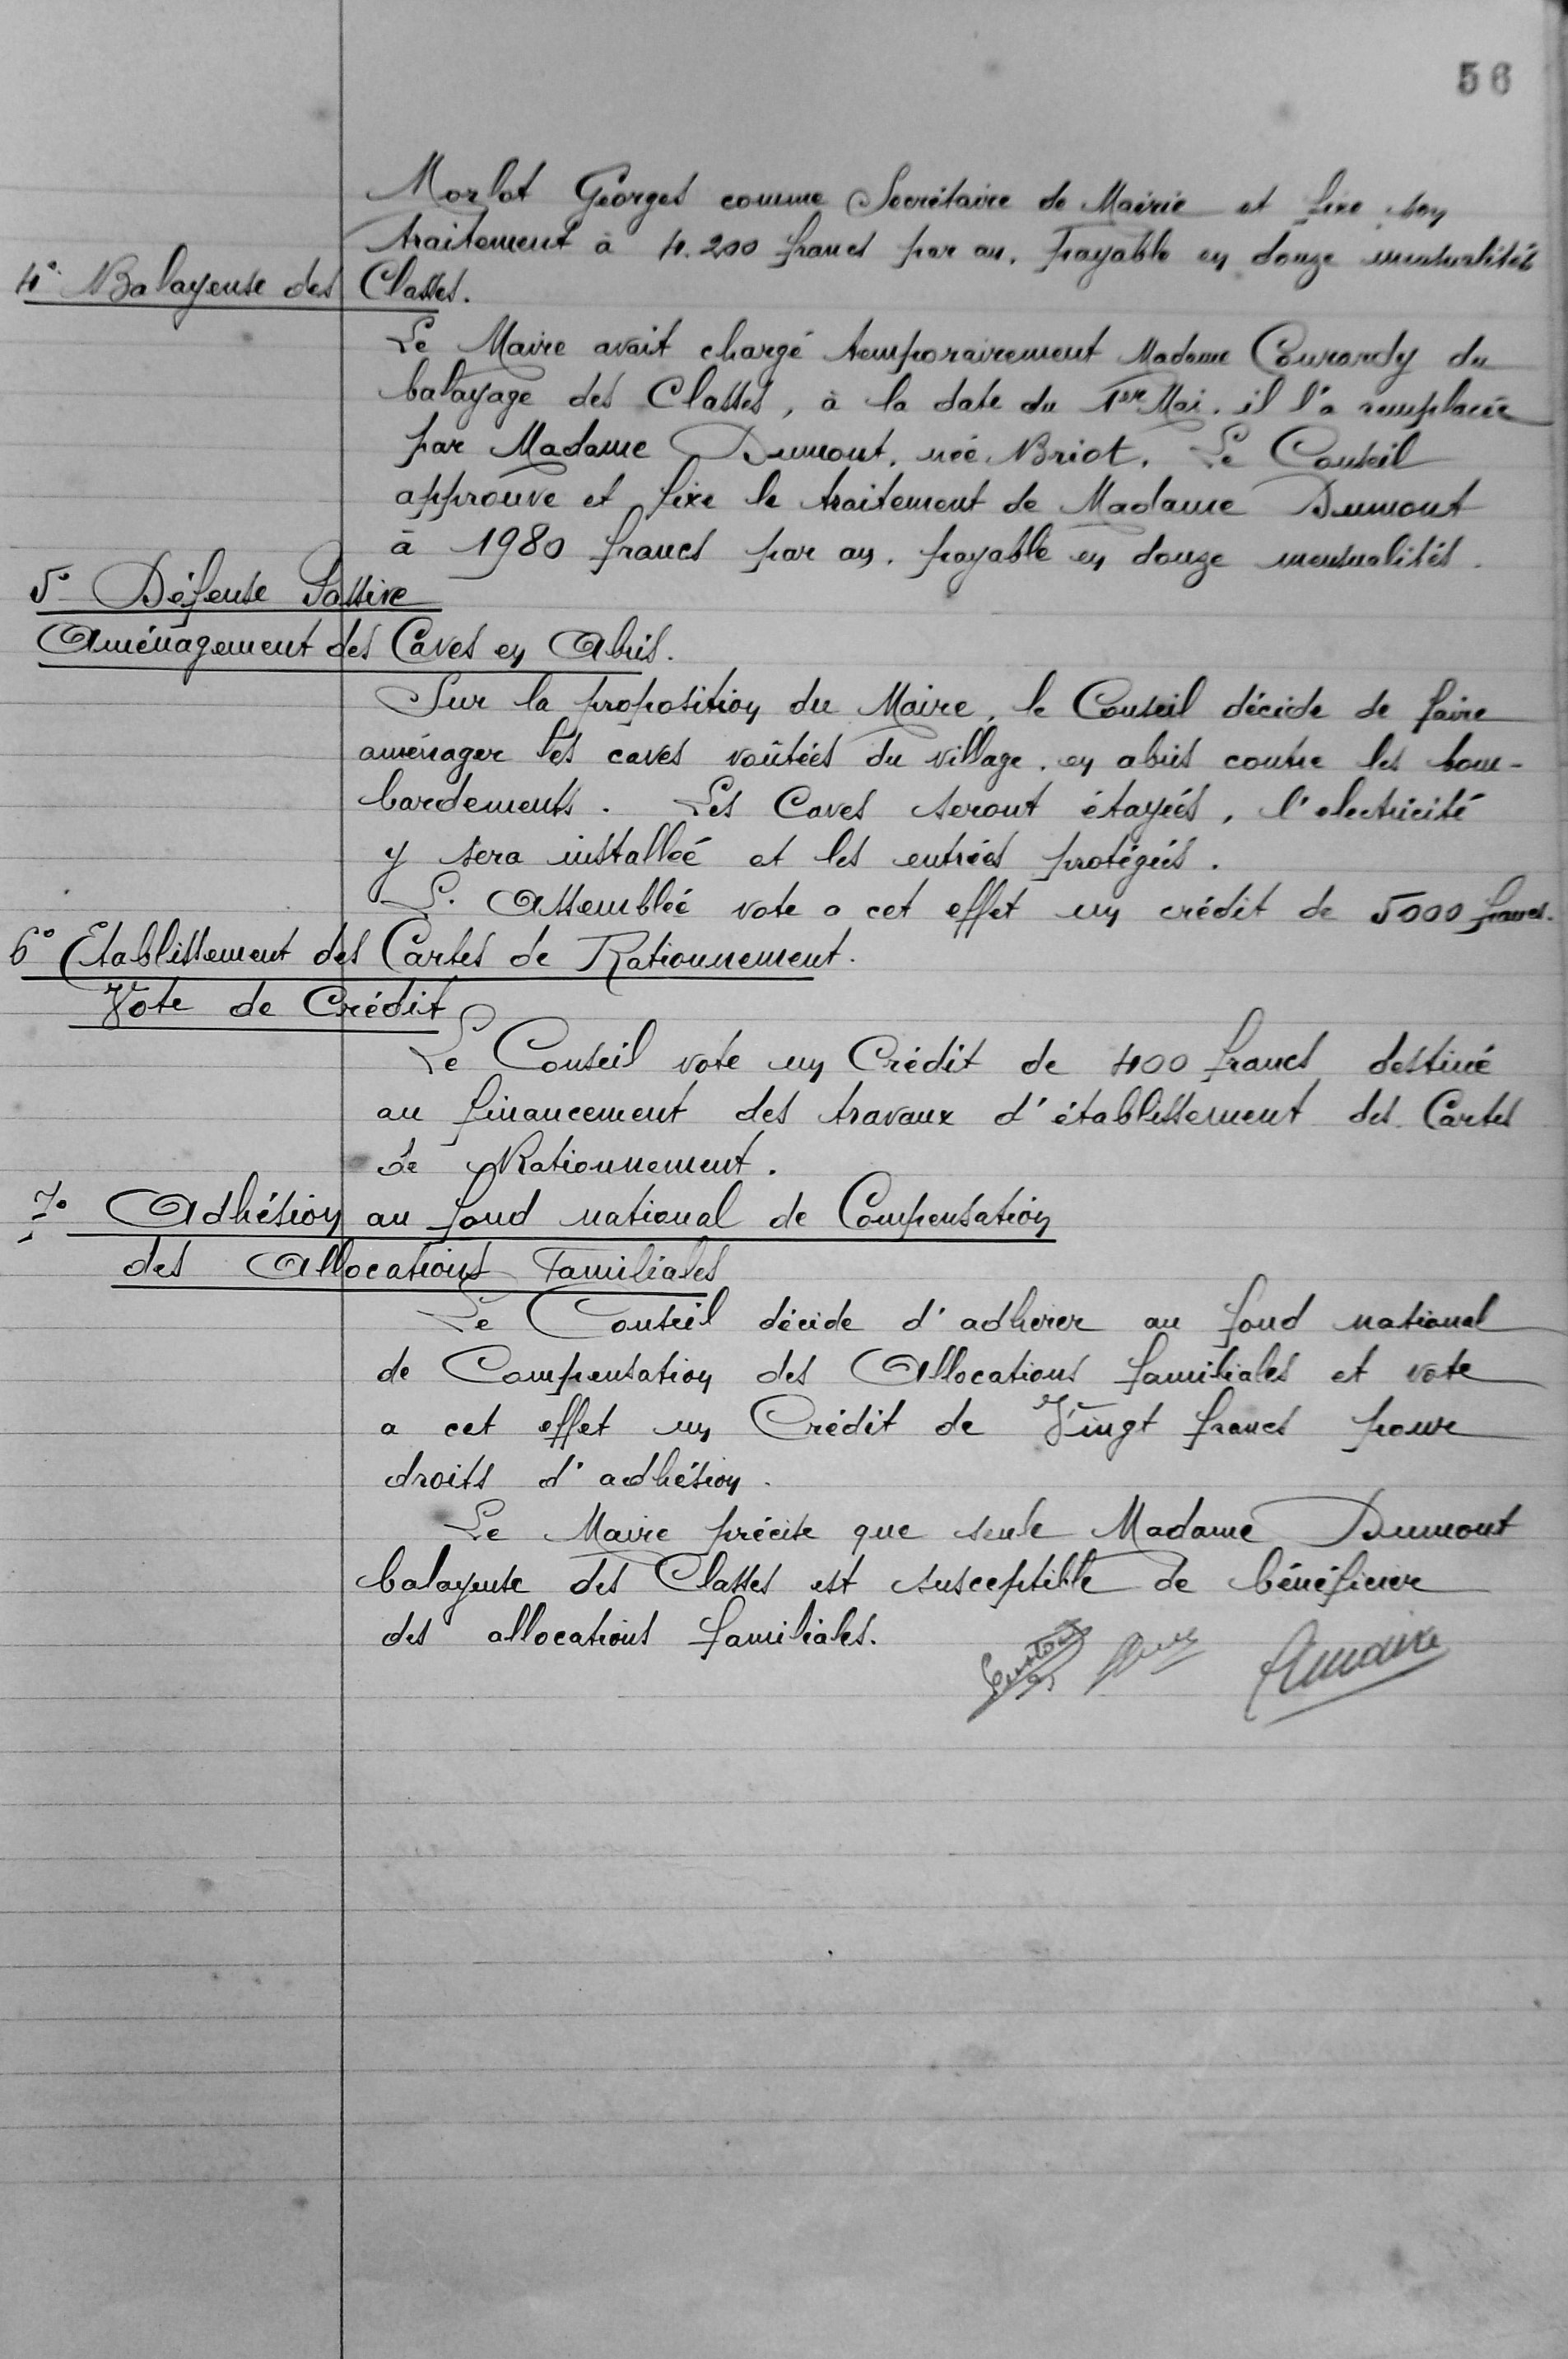 56
Morlot Georges comme Secrétaire de Mairie et fixe son
traitement à 4.200 francs par an. payable en douze mensualités
4° Balayeuse des Classes.
Le Maire avait chargé temporairement Madame Courardy du
balayage des Classes, à la date du 1er Mai. il l'a remplacée
par Madame Dumont, née Briot. Le Conseil
approuve et fixe le traitement de Madame Dumont
à 1980 francs par an. payable en douze mensualités.
5° Défense Passive
Aménagement des Caves en Abris.
Sur la proposition du Maire, le Conseil décide de faire
aménager les caves voûtées du village. en abris contre les bom-
bardements. Les Caves seront étayées, l'electricité
y sera installée et les entrées protégées.
L'Assemblée vote a cet effet un crédit de 5000 francs.
6° Etablissement des Cartes de Rationnement.
Vote de Crédit
Le Conseil vote un Crédit de 400 francs destiné
au financement des travaux d'établissement des Cartes
de Rationnement.
7° Adhésion au fond national de Compensation
des Allocations Familiales
Le Conseil décide d'adherer au fond national
de Compensation des Allocations familiales et vote
a cet effet un Crédit de Vingt francs pour
droits d'adhésion.
Le Maire précise que seule Madame Dumont
balayeuse des Classes est susceptible de bénéficier
des allocations familiales.